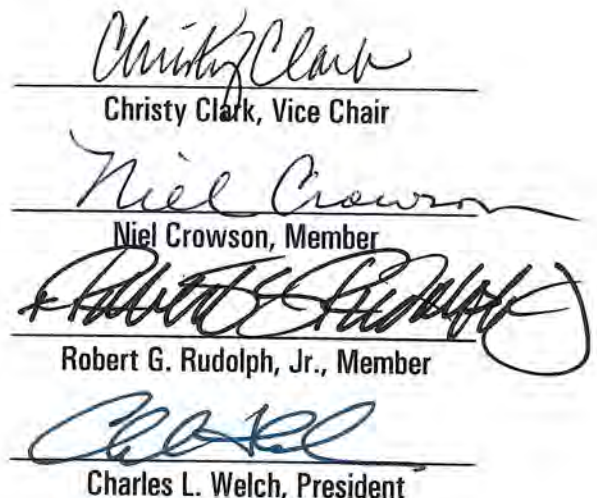 Christy Clark
Christy Clark, Vice Chair
Niel Crowson
Niel Crowson, Member
Robert G Rudolph Jr
Robert G. Rudolph, Jr., Member
Charles L. Welch, President